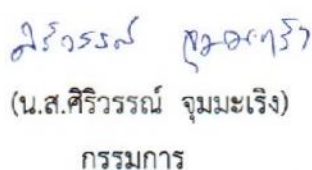 ศิริวรรณ์ จุมมะเริง
(น.ส.ศิริวรรณ์ จุมมะเริง)
กรรมการ